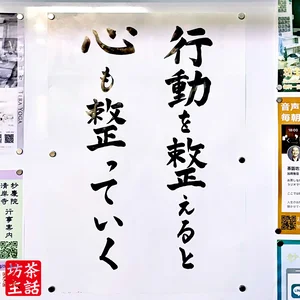 行動を整えると
心も整っていく
TERA YOGA
妙慶院
清岸寺
行事案内
音声
毎朝
茶話
坊主